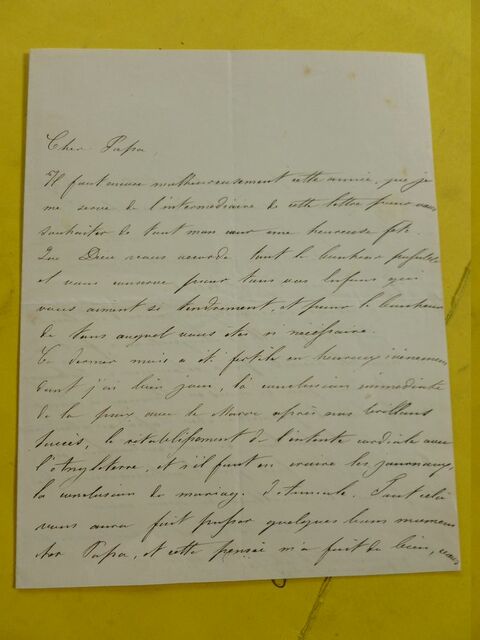 Cher Papa,
Il faut encore malheureusement cette année, que je
me serve de l'intermédiaire de cette lettre pour vous
souhaiter de tout mon cœur une heureuse fête.
Que Dieu vous accorde tout le bonheur possible
et vous conserve pour tous vos enfans qui
vous aiment si tendrement, et pour le bonheur
de tous auquel vous êtes si nécessaire.
Ce dernier mois a été fertile en heureux évènemens
dont j'ai bien joui, la conclusion immédiate
de la paix avec le Maroc après nos brillans
succès, le rétablissement de l'entente cordiale avec
l'Angleterre, et s'il faut en croire les journaux,
la conclusion du mariage d'Aumale. Tout cela
vous aura fait passer quelques bons momens
cher Papa, et cette pensée m'a fait du bien,